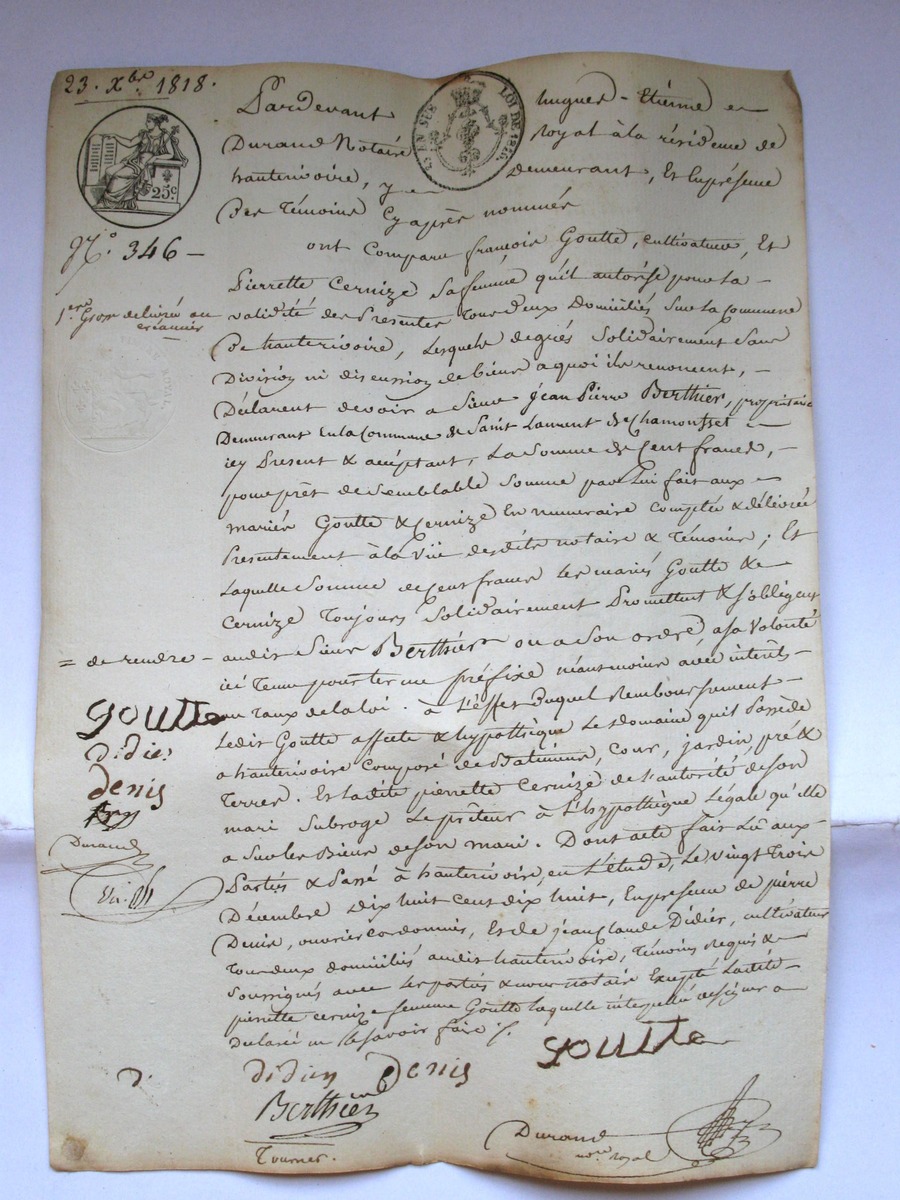 23. Xbre 1818.
Pardevant hugues-Etienne
EN SUS LOI DE 1816
Durand Notaire royal à la résidence de
25c
hauterivoire, y demeurant, et En présence
Des témoins Cy après nommés
N.º 346 –
ont Comparu françois Goutte, cultivateur, Et
Pierrette Cernize sa femme qu'il autorise pour la
1ere Grosse délivrée au
créancier
validité des Présentes tous deux Domiciliés sur la Commune
De hauterivoire, Lesquels de grés Solidairement sans
Division ni discussion de biens a quoi ils renoncent, –
Déclarent devoir a Sieur jean Pierre Berthier, propriétaire
Demeurant En la Commune de Saint Laurent de Chamousset
icy Présent & acceptant, La Somme de Cent francs, –
pour prêt de Semblable Somme par Lui fait aux
mariés Goutte & Cernize En numeraire Compté & délivrée
Présentement à la Vüe desdits notaire & Témoins ; Et
Laquelle Somme de Cent francs Les mariés Goutte &
Cernize Toujours Solidairement Promettent & s'obligent
= de rendre –
audit Sieur Berthier ou a Son ordre, a sa Volonté
ici Tenue pour terme préfixe néantmoins avec intérêts –
au Taux de la loi. à L'effet Duquel Remboursement –
Goutte
Ledit Goutte affecte & hypothèque Le Domaine qu'il Possède
didier
a hauterivoire Composé de Batiments, Cour, jardin, pré &
denis
Terres. Et Ladite pierrette Cernize de l'autorité de son
mari Subroge Le prêteur à L'hypothèque Légale qu'elle
Durand
a Sur les Biens de son mari. Dont acte fait Lû aux
Parties & Passé à hauterivoire, en L'étude, Le vingt Trois
Décembre Dix huit cent dix huit, En présence de pierre
Denis, ouvrier cordonnier, Et de jean Claude Didier, cultivateur
Tous deux domiciliés audit hauterivoire, témoins Requis &
Soussignés avec Les parties & nous notaire Excepté Ladite –
pierrette cernize femme Goutte laquelle interpellée de signer a
déclaré ne Le savoir faire ./.
Goutte
D. didier Denis
Berthier
Durand
nore royal
Tourner.